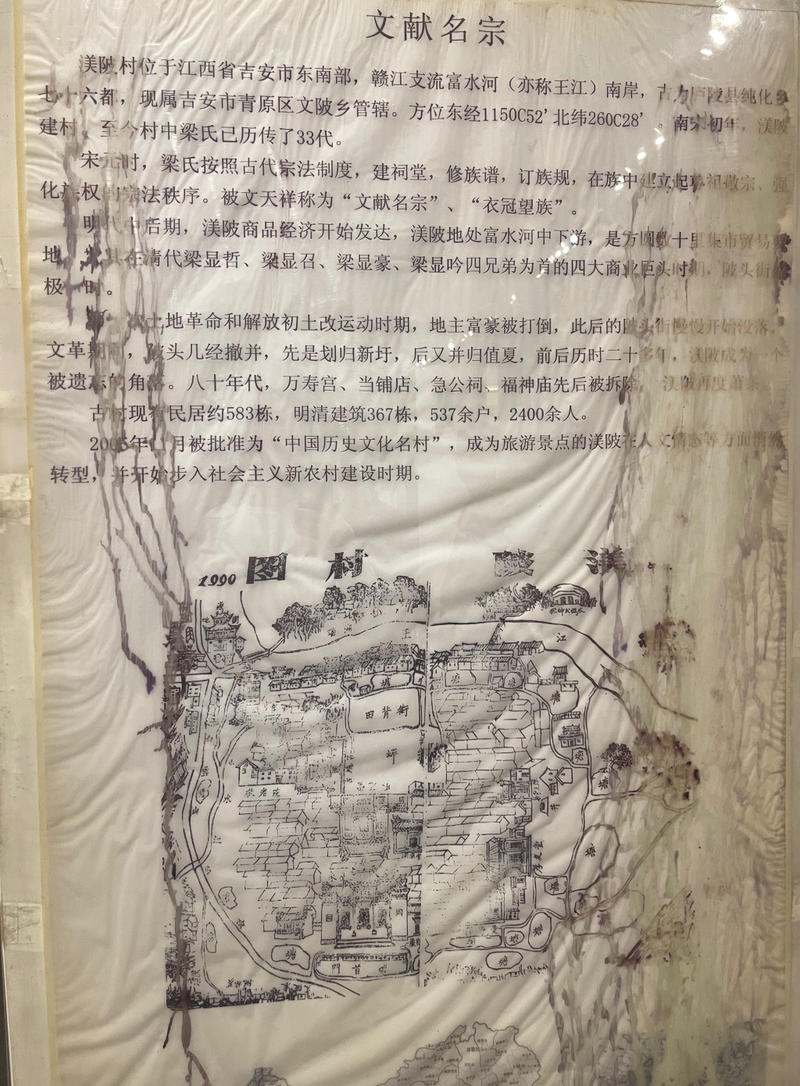 文献名宗
渼陂村位于江西省吉安市东南部，赣江支流富水河（亦称王江）南岸，古为庐陵县纯化乡
七十六都，现属吉安市青原区文陂乡管辖。方位东经1150C52'北纬260C28'。南宋初年，渼陂
建村，至今村中梁氏已历传了33代。
宋元时，梁氏按照古代宗法制度，建祠堂，修族谱，订族规，在族中建立起尊祖敬宗、强
化族权的宗法秩序。被文天祥称为“文献名宗”、“衣冠望族”。
明代中后期，渼陂商品经济开始发达，渼陂地处富水河中下游，是方圆数十里集市贸易
地，尤其在清代梁显哲、梁显召、梁显豪、梁显吟四兄弟为首的四大商业巨头时期，陂头街
极一时。
土地革命和解放初土改运动时期，地主富豪被打倒，此后的陂头街慢慢开始没落。
文革期间，陂头几经撤并，先是划归新圩，后又并归值夏，前后历时二十多年，渼陂成为一个
被遗忘的角落。八十年代，万寿宫、当铺店、急公祠、福神庙先后被拆除，渼陂再度萧条。
古村现有民居约583栋，明清建筑367栋，537余户，2400余人。
月被批准为“中国历史文化名村”，成为旅游景点的渼陂在人文情感等方面
转型，并开始步入社会主义新农村建设时期。
1990 图村 陂渼
王 江
塘 塘
田背街 塘
坪 塘
敬老院 塘
水
塘
塘
塘 塘
塘 塘